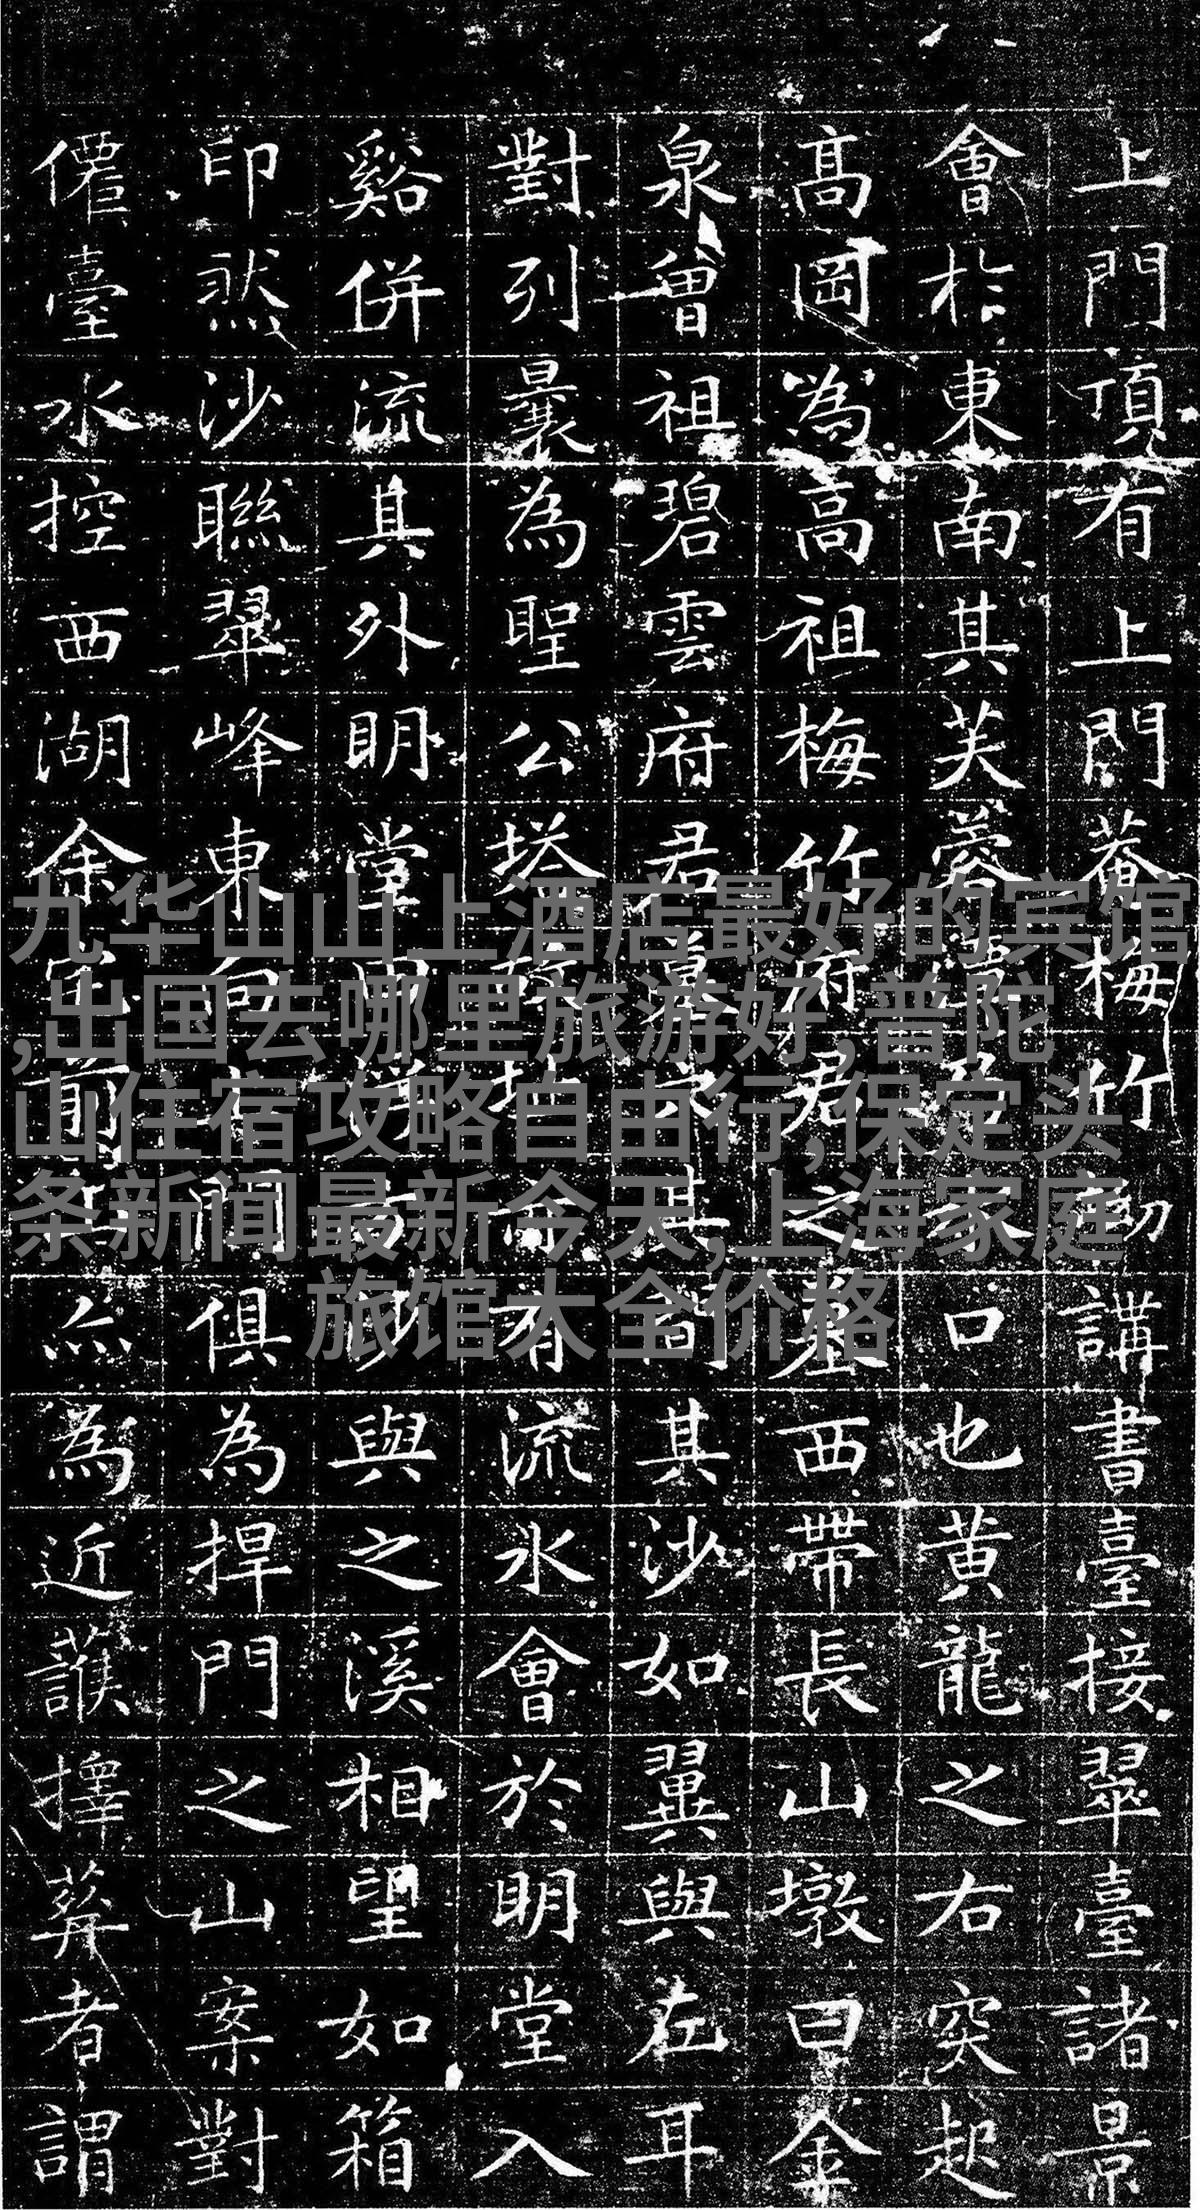 上門頂有上門菴梅竹講書臺接翠臺諸景
會於東南其芙蓉口也黃龍之右突起
高岡為高祖梅竹府君之墓西帶長山墩曰金
泉曾祖碧雲府君墓其間其沙如翼與左耳
對列曩為聖公塔有流水會於明堂入
谿併流其外明堂與之溪相望如箱
印然沙聯翠峰東向間俱為捍門之山案對
僊臺水控西湖余前為近擇葬者謂
九华山山上酒店最好的宾馆
,出国去哪里旅游好,普陀
山住宿攻略自由行,保定头
条新闻最新今天,上海家庭
旅馆大全价格